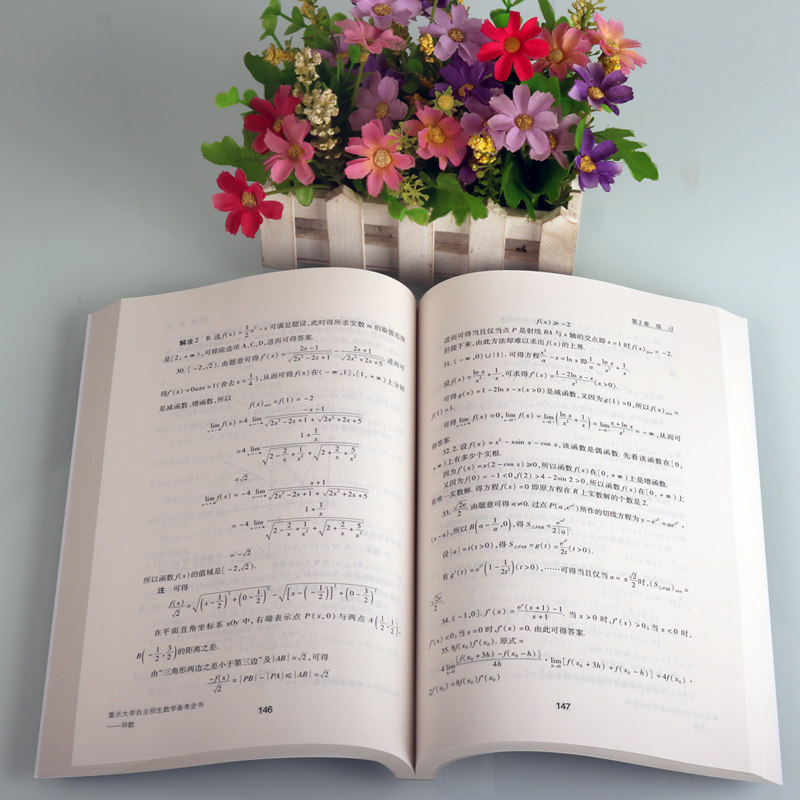 解法2 B.选f(x)=\frac{1}{2}x²-x可满足题设,此时得所求实数m的取值范围
是[2,+∞),可排除选项A,C,D,进而可得答案.
30.[-2,√2).由题意可得f'(x)=\frac{2x-1}{\sqrt{2x²-2x+1}}-\frac{2x+1}{\sqrt{2x²+2x+5}},进而可
得f'(x)=0⇔x=1(舍去x=\frac{1}{4}),从而可得f(x)在(-∞,1],[1,+∞)上分别
是减函数、增函数,所以
f(x)_{min}=f(1)=-2
\lim f(x)=4\lim\frac{-x-1}{\sqrt{2x²-2x+1}+\sqrt{2x²+2x+5}}
=4\lim\frac{1+\frac{1}{x}}{\sqrt{2-\frac{2}{x}+\frac{1}{x²}}+\sqrt{2+\frac{2}{x}+\frac{5}{x²}}}
=√2
\lim f(x)=-4\lim\frac{x+1}{\sqrt{2x²-2x+1}+\sqrt{2x²+2x+5}}
=-4\lim\frac{1+\frac{1}{x}}{\sqrt{2-\frac{2}{x}+\frac{1}{x²}}+\sqrt{2+\frac{2}{x}+\frac{5}{x²}}}
=-√2
所以函数f(x)的值域是[-2,√2).
注 可得
\frac{f(x)}{√2}=\sqrt{(x-\frac{1}{2})²+(0-\frac{1}{2})²}-\sqrt{[x-(-\frac{1}{2})]²+(0-\frac{3}{2})²}
在平面直角坐标系xOy中,右端表示点P(x,0)与两点A(\frac{1}{2},\frac{1}{2}),
B(-\frac{1}{2},\frac{3}{2})的距离之差.
由“三角形两边之差小于第三边”及|AB|=√2,可得
\frac{-f(x)}{√2}=|PB|-|PA|≤|AB|=√2
重点大学自主招生数学备考全书
——导数
146
第2章 练 习
f(x)≥-2
进而可得当且仅当点P是射线BA与x轴的交点即x=1时f(x)_{min}=-2.
但接下来,由此方法却难以求出f(x)的上界.
31.(-∞,0)∪{1}.可得方程\frac{x²}{a}-x=ln x即\frac{1}{a}=\frac{ln x}{x²}+\frac{1}{x}.
设f(x)=\frac{ln x}{x²}+\frac{1}{x},可求得f'(x)=\frac{1-2ln x-x}{x³}(x>0).
可得g(x)=1-2ln x-x(x>0)是减函数,又因为g(1)=0,所以f(x)_{max}=
f(1)=1.
可得\lim f(x)=0,\lim f(x)=\lim(\frac{ln x}{x²}+\frac{1}{x})=\lim\frac{x+ln x}{x²}=-∞,从而可
得答案.
32.2.设f(x)=x²-xsin x-cos x,该函数是偶函数.先看该函数在[0,
+∞)上有多少个实根.
因为f'(x)=x(2-cos x)≥0,所以函数f(x)在[0,+∞)上是增函数.
又因为f(0)=-1<0,f(2)>4-2sin 2>0,所以函数f(x)在[0,+∞)上
有唯一实数解.得方程f(x)=0即原方程在R上实数解的个数是2.
33.\frac{\sqrt{2e}}{2}.由题意可得a≠0.过点P(a,e^{a²})所作的切线方程为
(x-a),所以B(a-\frac{1}{a},0),得S_{△PAB}=\frac{e^{a²}}{2|a|}.
设|a|=t(t>0),得S_{△PAB}=g(t)=\frac{e^{t²}}{2t}(t>0).
有g'(t)=e^{t²}(1-\frac{1}{2t²})(t>0),……可得当且仅当a=±\frac{√2}{2}时,(S_{△PAB})_{min}=
\frac{\sqrt{2e}}{2}
34.(-1,0].f'(x)=\frac{e^x(x+1)-1}{x+1}.当x>0时,f'(x)>0;当x<0时,
f'(x)<0;当x=0时,f'(x)=0.由此可得答案.
35.8f(x₀)f'(x₀).原式=
4\lim\frac{[f(x₀+3h)-f(x₀-h)]}{4h}·\lim[f(x₀+3h)+f(x₀-h)]=4f'(x₀)·
2f(x₀)=8f(x₀)f'(x₀)
147